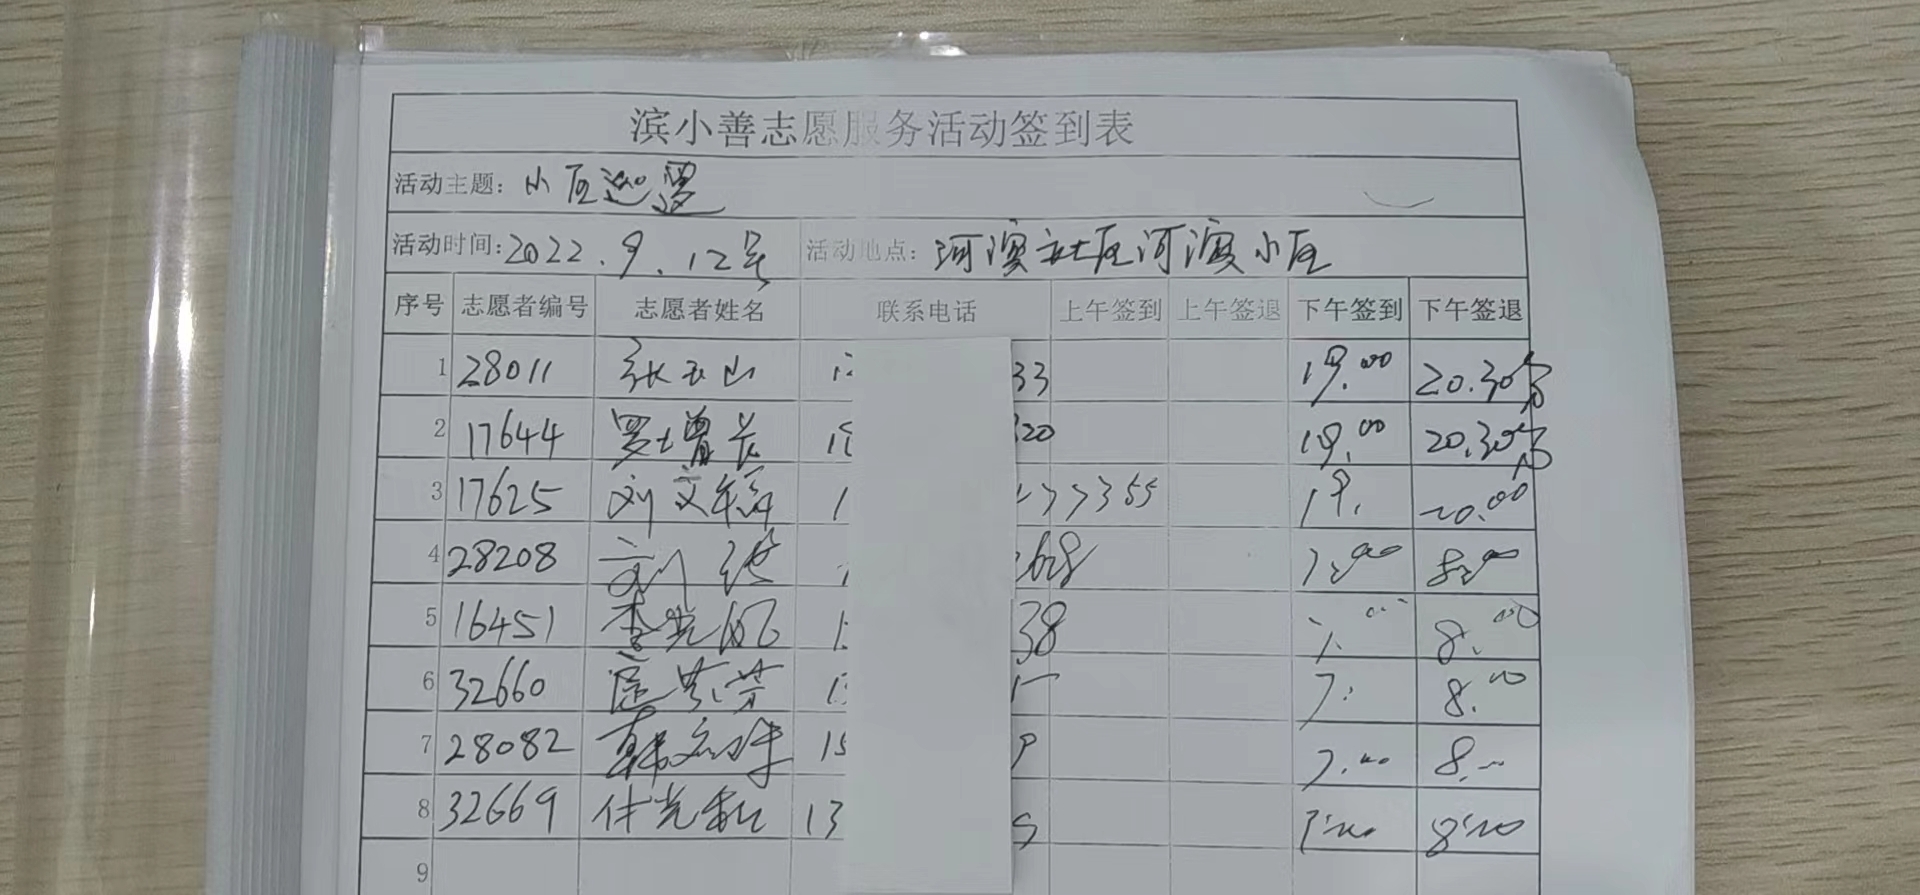 滨小善志愿服务活动签到表
活动主题：小区巡逻
活动时间：2022.9.12号 活动地点：河滨社区河滨小区
序号 志愿者编号 志愿者姓名 联系电话 上午签到 上午签退 下午签到 下午签退
1 28011 张玉山 33 19.00 20.30分
2 17644 罗增长 320 19.00 20.30分
3 17625 刘文 77355 19. 20.00
4 28208 刘 268 7:00 8:00
5 16451 李光 38 7.00 8.00
6 32660 13 7: 8.00
7 28082 韩 15 9 7.00 8.00
8 32669 仵光 13 5 7:00 8:00
9